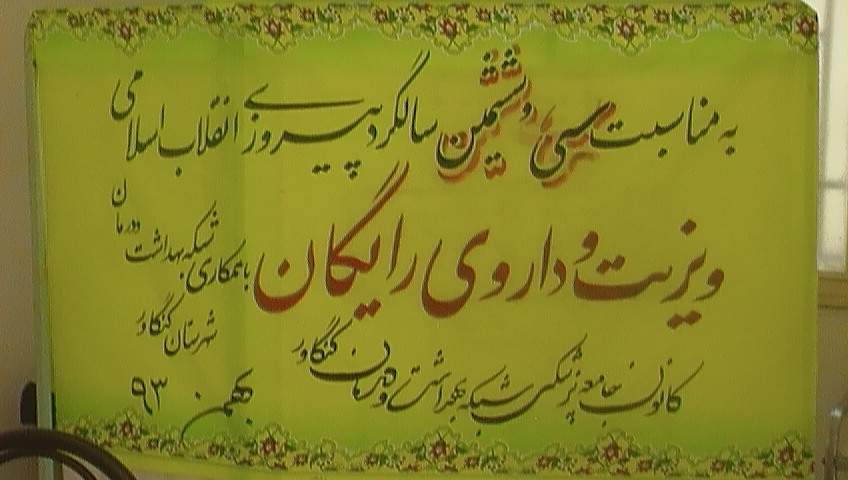 به مناسبت سی و ششمین سالگرد پیروزی انقلاب اسلامی
ویزیت و داروی رایگان
با همکاری شبکه بهداشت و درمان
شهرستان کنگاور
کانون جامعه پزشکی شبکه بهداشت و درمان کنگاور
بهمن ۹۳